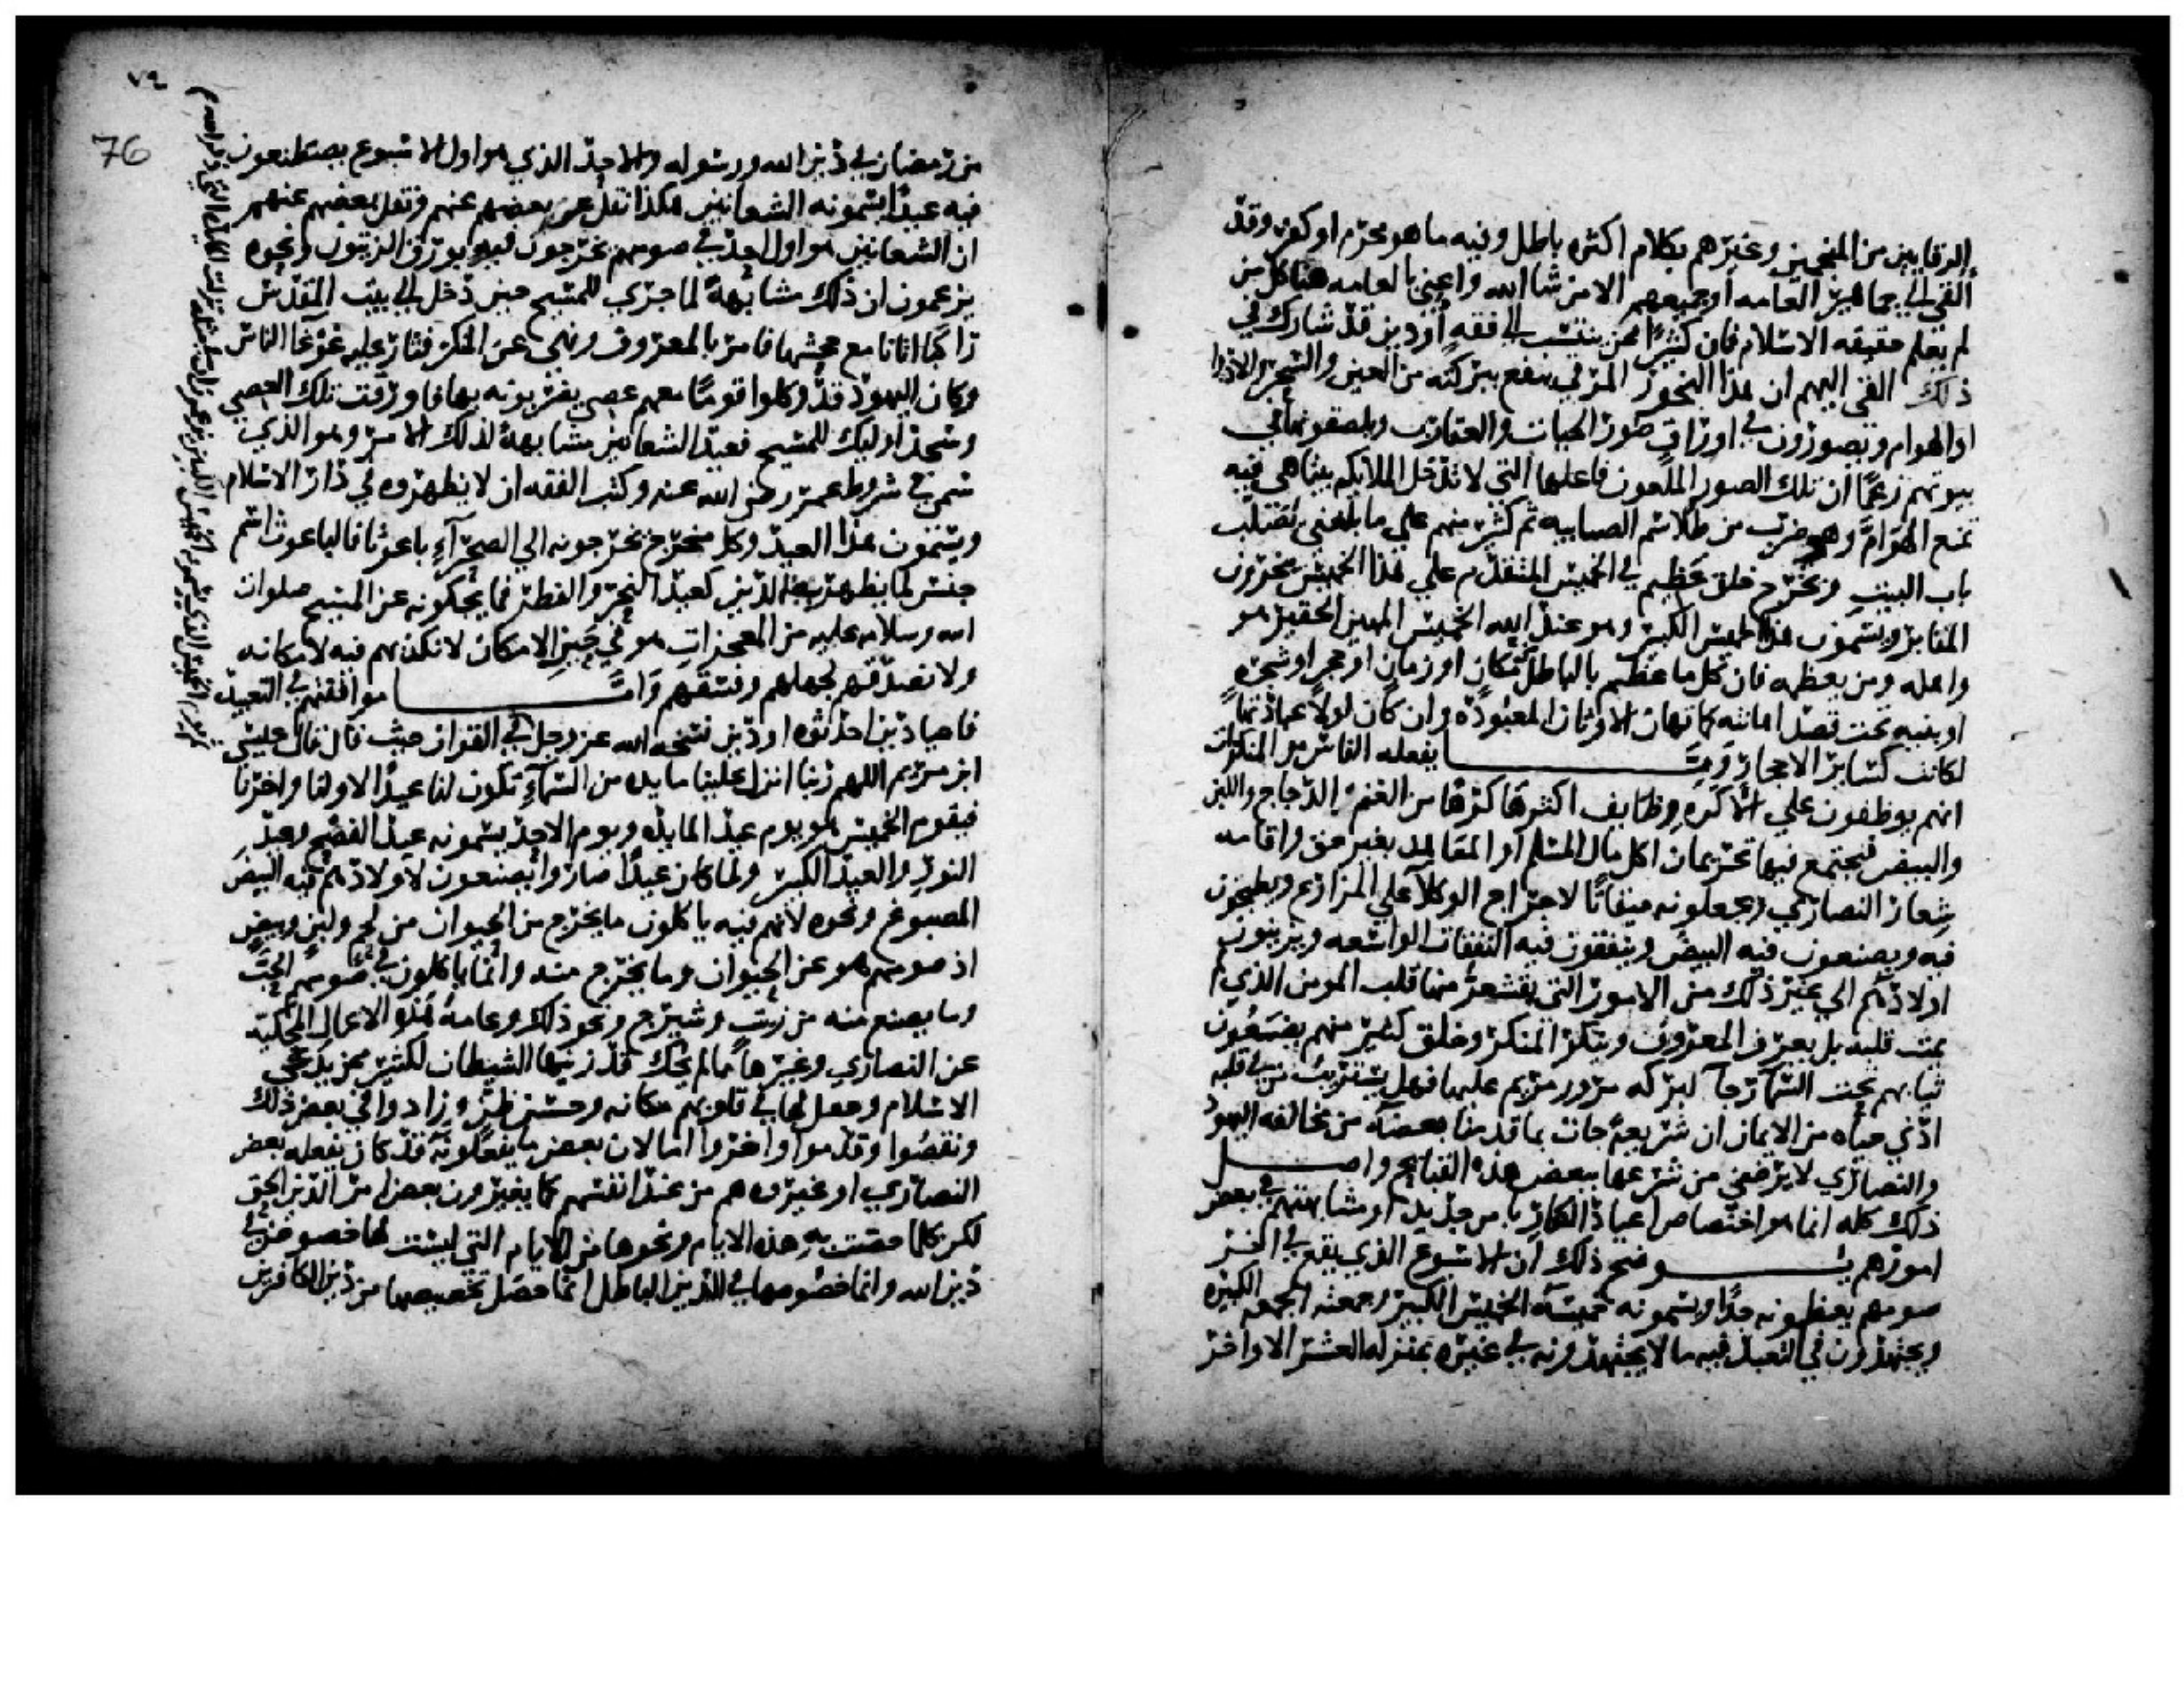 الرقايين من المنجمين وغيرهم بكلام اكثره باطل وفيه ما هو محرم او كفر وقد
القي الي جماهير العامه او جميعهم الا من شا الله واعني بالعامه هنا كل من
لم يعلم حقيقه الاسلام فان كثيرا ممن ينتسب الي فقه او دين قد شارك في
ذلك القي اليهم ان هذا البخور المرقي ينفع ببركته من العين والسحر والادوا
او الهوام ويصورون في اوراق صور الحيات والعقارب ويلصقونها في
بيوتهم زعما ان تلك الصور الملعون فاعلها التي لا تدخل الملايكه بيتا هي فيه
تمنع الهوام وهو ضرب من طلاسم الصابيه ثم كثير منهم علي ما بلغني يصلب
باب البيت ويخرج خلق عظيم في الخميس المتقدم علي هذا الخميس يبخرون
المقابر ويسمون هذا الخميس الكبير وهو عند الله الخميس المهين الحقير هو
واهله ومن يعظمه فان كل ما عظم بالباطل من مكان او زمان او حجر او شجره
او بنيه يجب قصد اهانته كما تهان الاوثان المعبوده وان كان لولا عبادتها
لكانت كساير الاحجار ومما يفعله الناس من المنكرات
انهم يوظفون علي الاكره وظايف اكثرها كرها من الغنم والدجاج واللبن
والبيض فيجتمع فيها تحريمان اكل مال المسلم او المعاهد بغير حق واقامه
شعار النصاري ويجعلونه ميقاتا لاخراج الوكلا علي المزارع ويطبخون
فيه ويصنعون فيه البيض وينفقون فيه النفقات الواسعه ويزينون
اولادهم الي غير ذلك من الامور التي يقشعر منها قلب المومن الذي لم
يمت قلبه بل يعرف المعروف وينكر المنكر وخلق كثير منهم يضعون
ثيابهم تحت السما رجا لبركه مرور مريم عليها فهل يستريب من في قلبه
ادني حياه من الايمان ان شريعه جات بما قدمنا بعضه من مخالفه اليهود
والنصاري لا يرضي من شرعها ببعض هذه القبايح واصل
ذلك كله انما هو اختصاص اعياد الكفار بامر جديد او مشابهتهم في بعض
امورهم يوضح ذلك ان الاسبوع الذي يقع في اخر
صومهم يعظمونه جدا ويسمونه خميسه الخميس الكبير وجمعته الجمعه الكبيره
ويجتهدون في التعبد فيه ما لا يجتهدونه في غيره بمنزله العشر الاواخر
٧٩
76
من رمضان في دين الله ورسوله والاحد الذي هو اول الاسبوع يصطنعون
فيه عيدا يسمونه الشعانين هكذا نقل عن بعضهم عنهم ونقل بعضهم عنهم
ان الشعانين هو اول احد في صومهم يخرجون فيه بورق الزيتون ونحوه
يزعمون ان ذلك مشابهة لما جري للمسيح حين دخل الي بيت المقدس
راكبا اتانا مع جحشها فامر بالمعروف ونهي عن المنكر فثار عليه غوغا الناس
وكان اليهود قد وكلوا قوما معهم عصي يضربونه بها فاورقت تلك العصي
وسجد اوليك للمسيح فعيد الشعانين مشابهة لذلك الامر وهو الذي
سمي في شروط عمر رضي الله عنه وكتب الفقه ان لا يظهروه في دار الاسلام
ويسمون هذا العيد وكل مخرج يخرجونه الي الصحرآء باعوثا فالباعوث اسم
جنس لما يظهر به الدين كعيد النحر والفطر فما يحكونه عن المسيح صلوات
الله وسلامه عليه من المعجزات هو في حيز الامكان لا نكذبهم فيه لامكانه
ولا نصدقهم لجهلهم وفسقهم واما موافقتهم في التعيد
فاحيا دين احدثوه او دين نسخه الله عز وجل في القران حيث قال قال عيسي
ابن مريم اللهم ربنا انزل علينا مايده من السمآء تكون لنا عيدا لاولنا واخرنا
فيقوم الخميس هو يوم عيد المايده ويوم الاحد يسمونه عيد الفصح وعيد
النور والعيد الكبير ولما كان عيدا صاروا يصنعون لاولادهم فيه البيض
المصبوغ ونحوه لانهم فيه ياكلون ما يخرج من الحيوان من لحم ولبن وبيض
اذ صومهم هو عن الحيوان وما يخرج منه وانما ياكلون في صومهم الحب
وما يصنع منه من زيت وشيرج ونحو ذلك وعامة هذه الاعمال المحكيه
عن النصاري وغيرها مما لم يحك قد زينها الشيطان لكثير ممن يدعي
الاسلام وجعل لها في قلوبهم مكانه وحسن ظن وزادوا في بعض ذلك
ونقصوا وقدموا واخروا اما لان بعض ما يفعلونه قد كان يفعله بعض
النصاري او غيروه هم من عند انفسهم كما يغيرون بعض امر الدين الحق
لكن كلما خصت به هذه الايام ونحوها من الايام التي ليست لها خصوص في
دين الله وانما خصوصها في الدين الباطل انما اصل تخصيصها من دين الكافرين